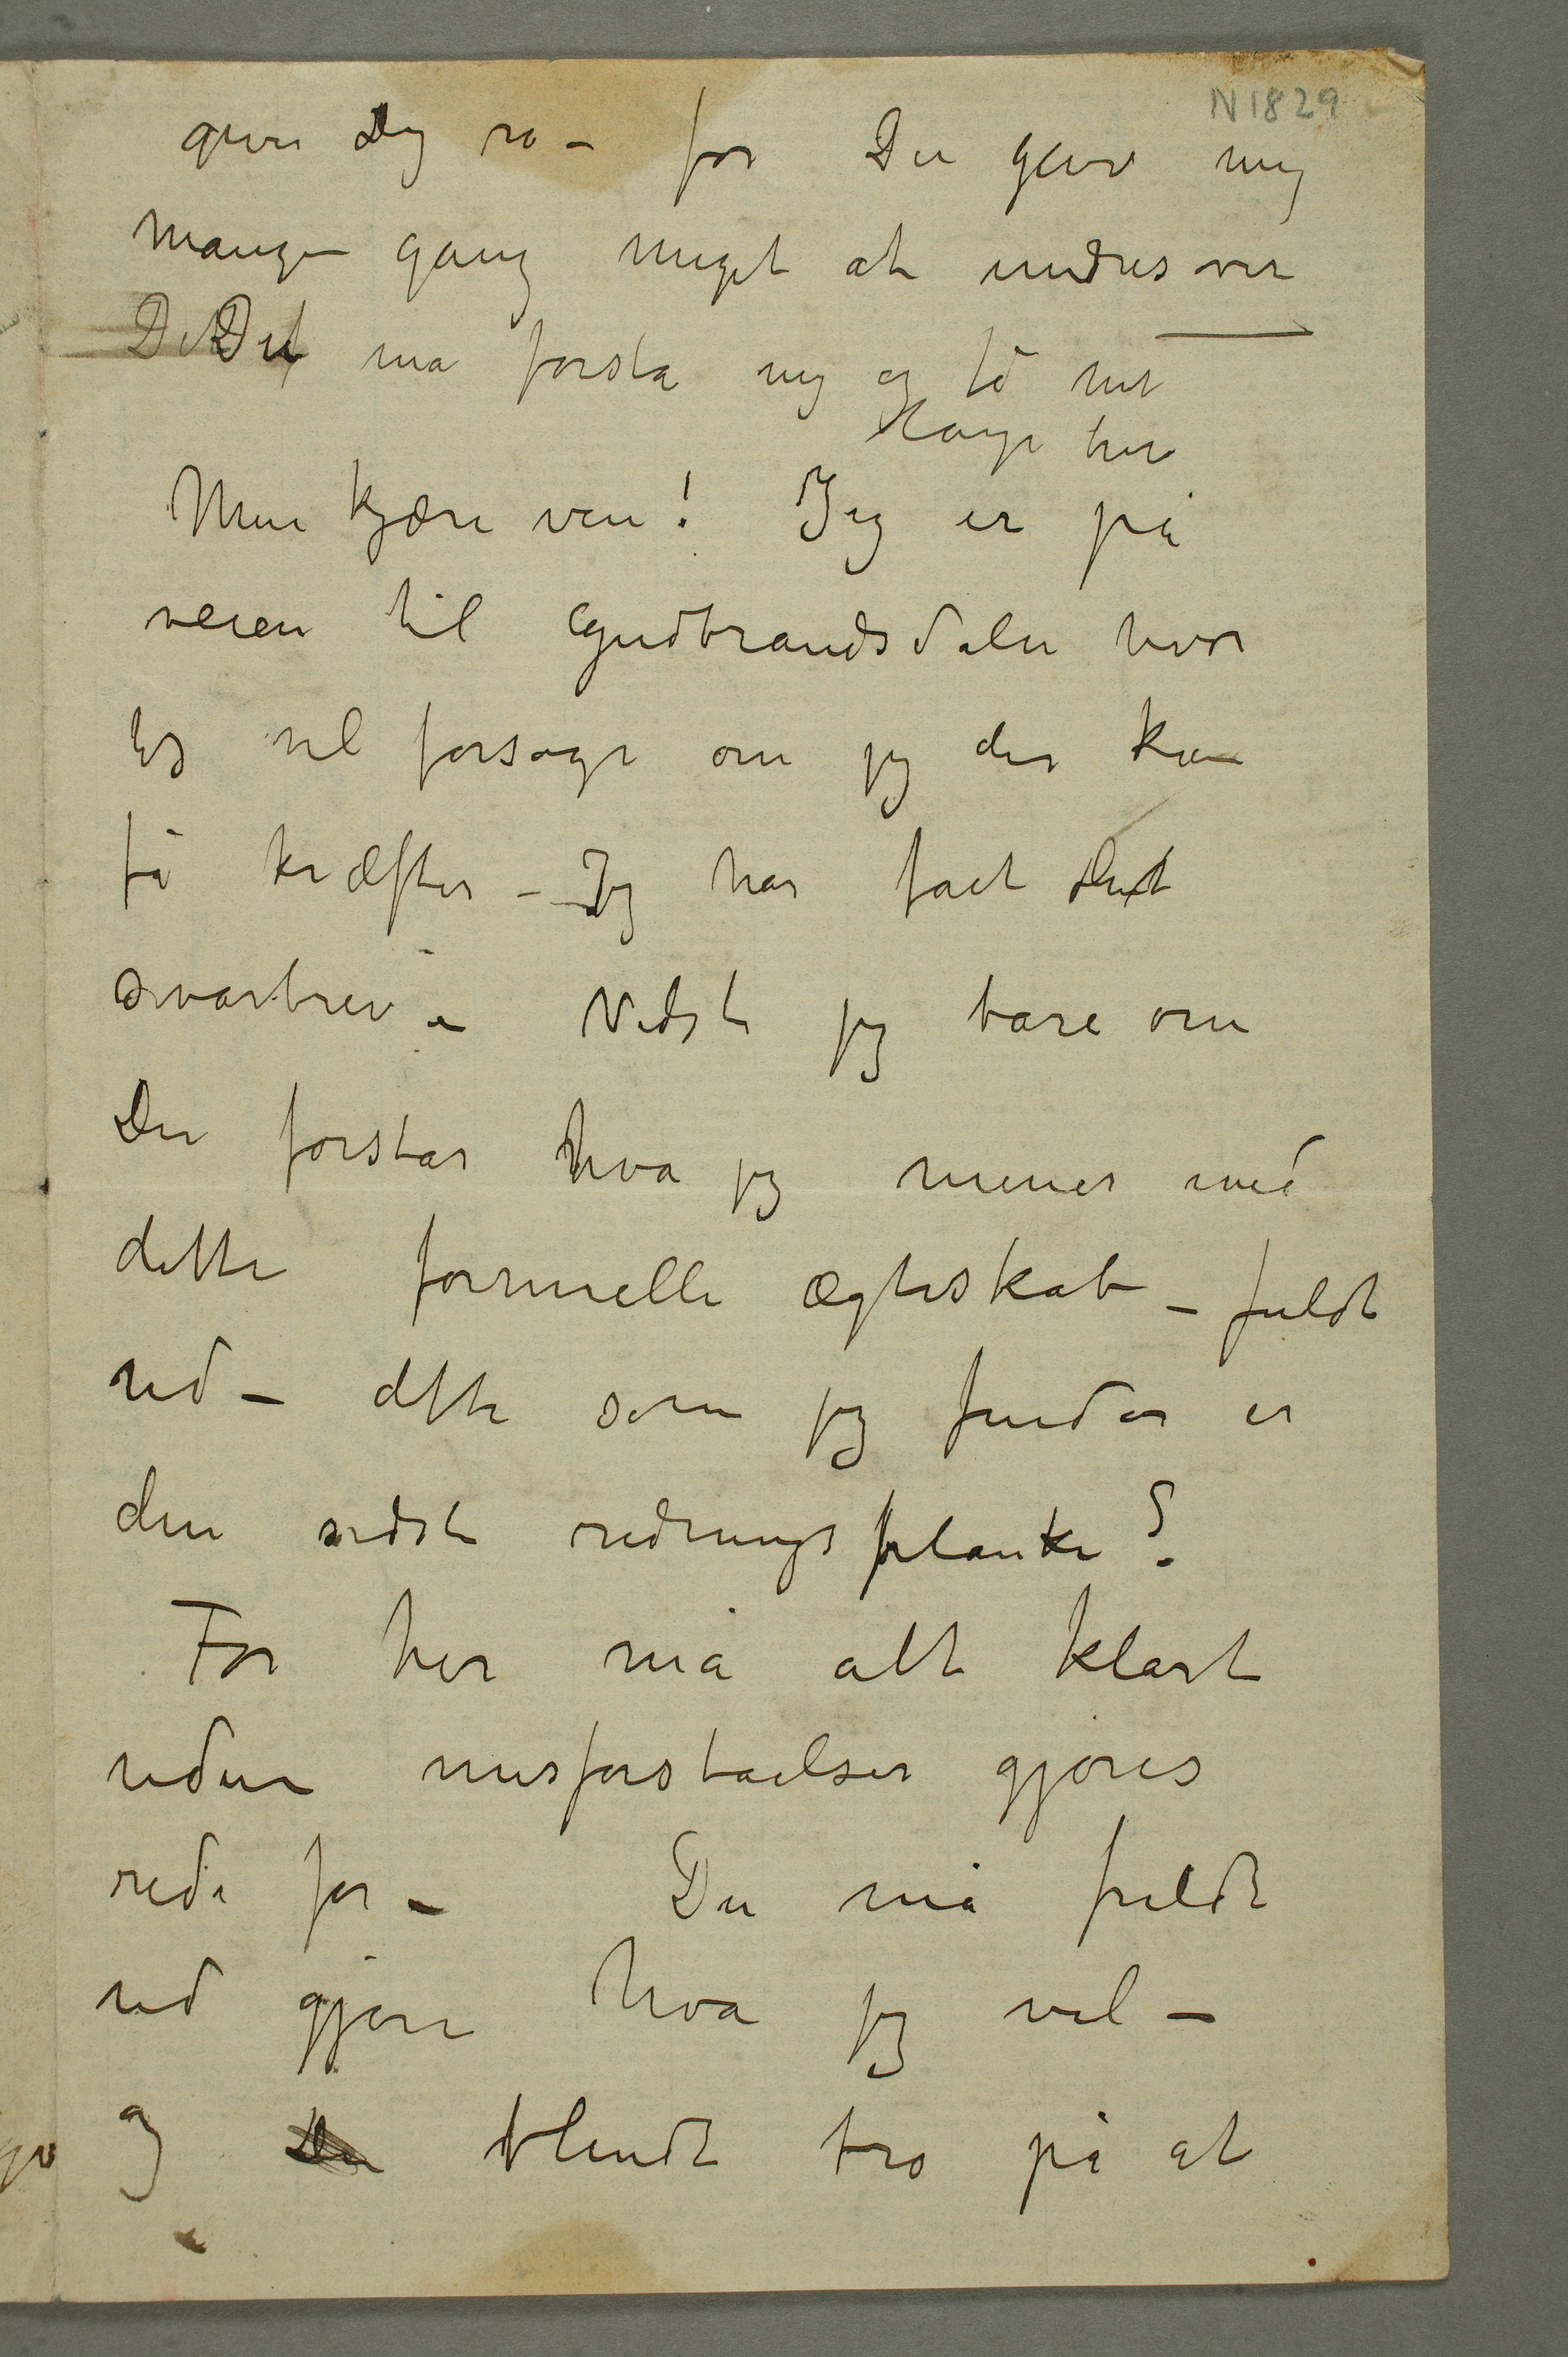 N 1829
give Dig ro – for Du gav mig
mangen gang meget at undres over
Du må forstå mig og få mit
Hauge her
Min kjære ven! Jeg er på
veien til Gudbrandsdalen hvor
jeg vil forsøge om jeg der kan
få kræfter – Jeg har fåt dit
svarbrev – Vidste jeg bare om
Du forstår hva jeg mener med
dette formelle ægteskab – fuldt
ud – dette som jeg finder er
den sidste redningsplanke?
For her må alt klart
uden misforståelser gjøres
rede for – Du må fuldt
ud gjøre hva jeg vil –
og blindt tro på at